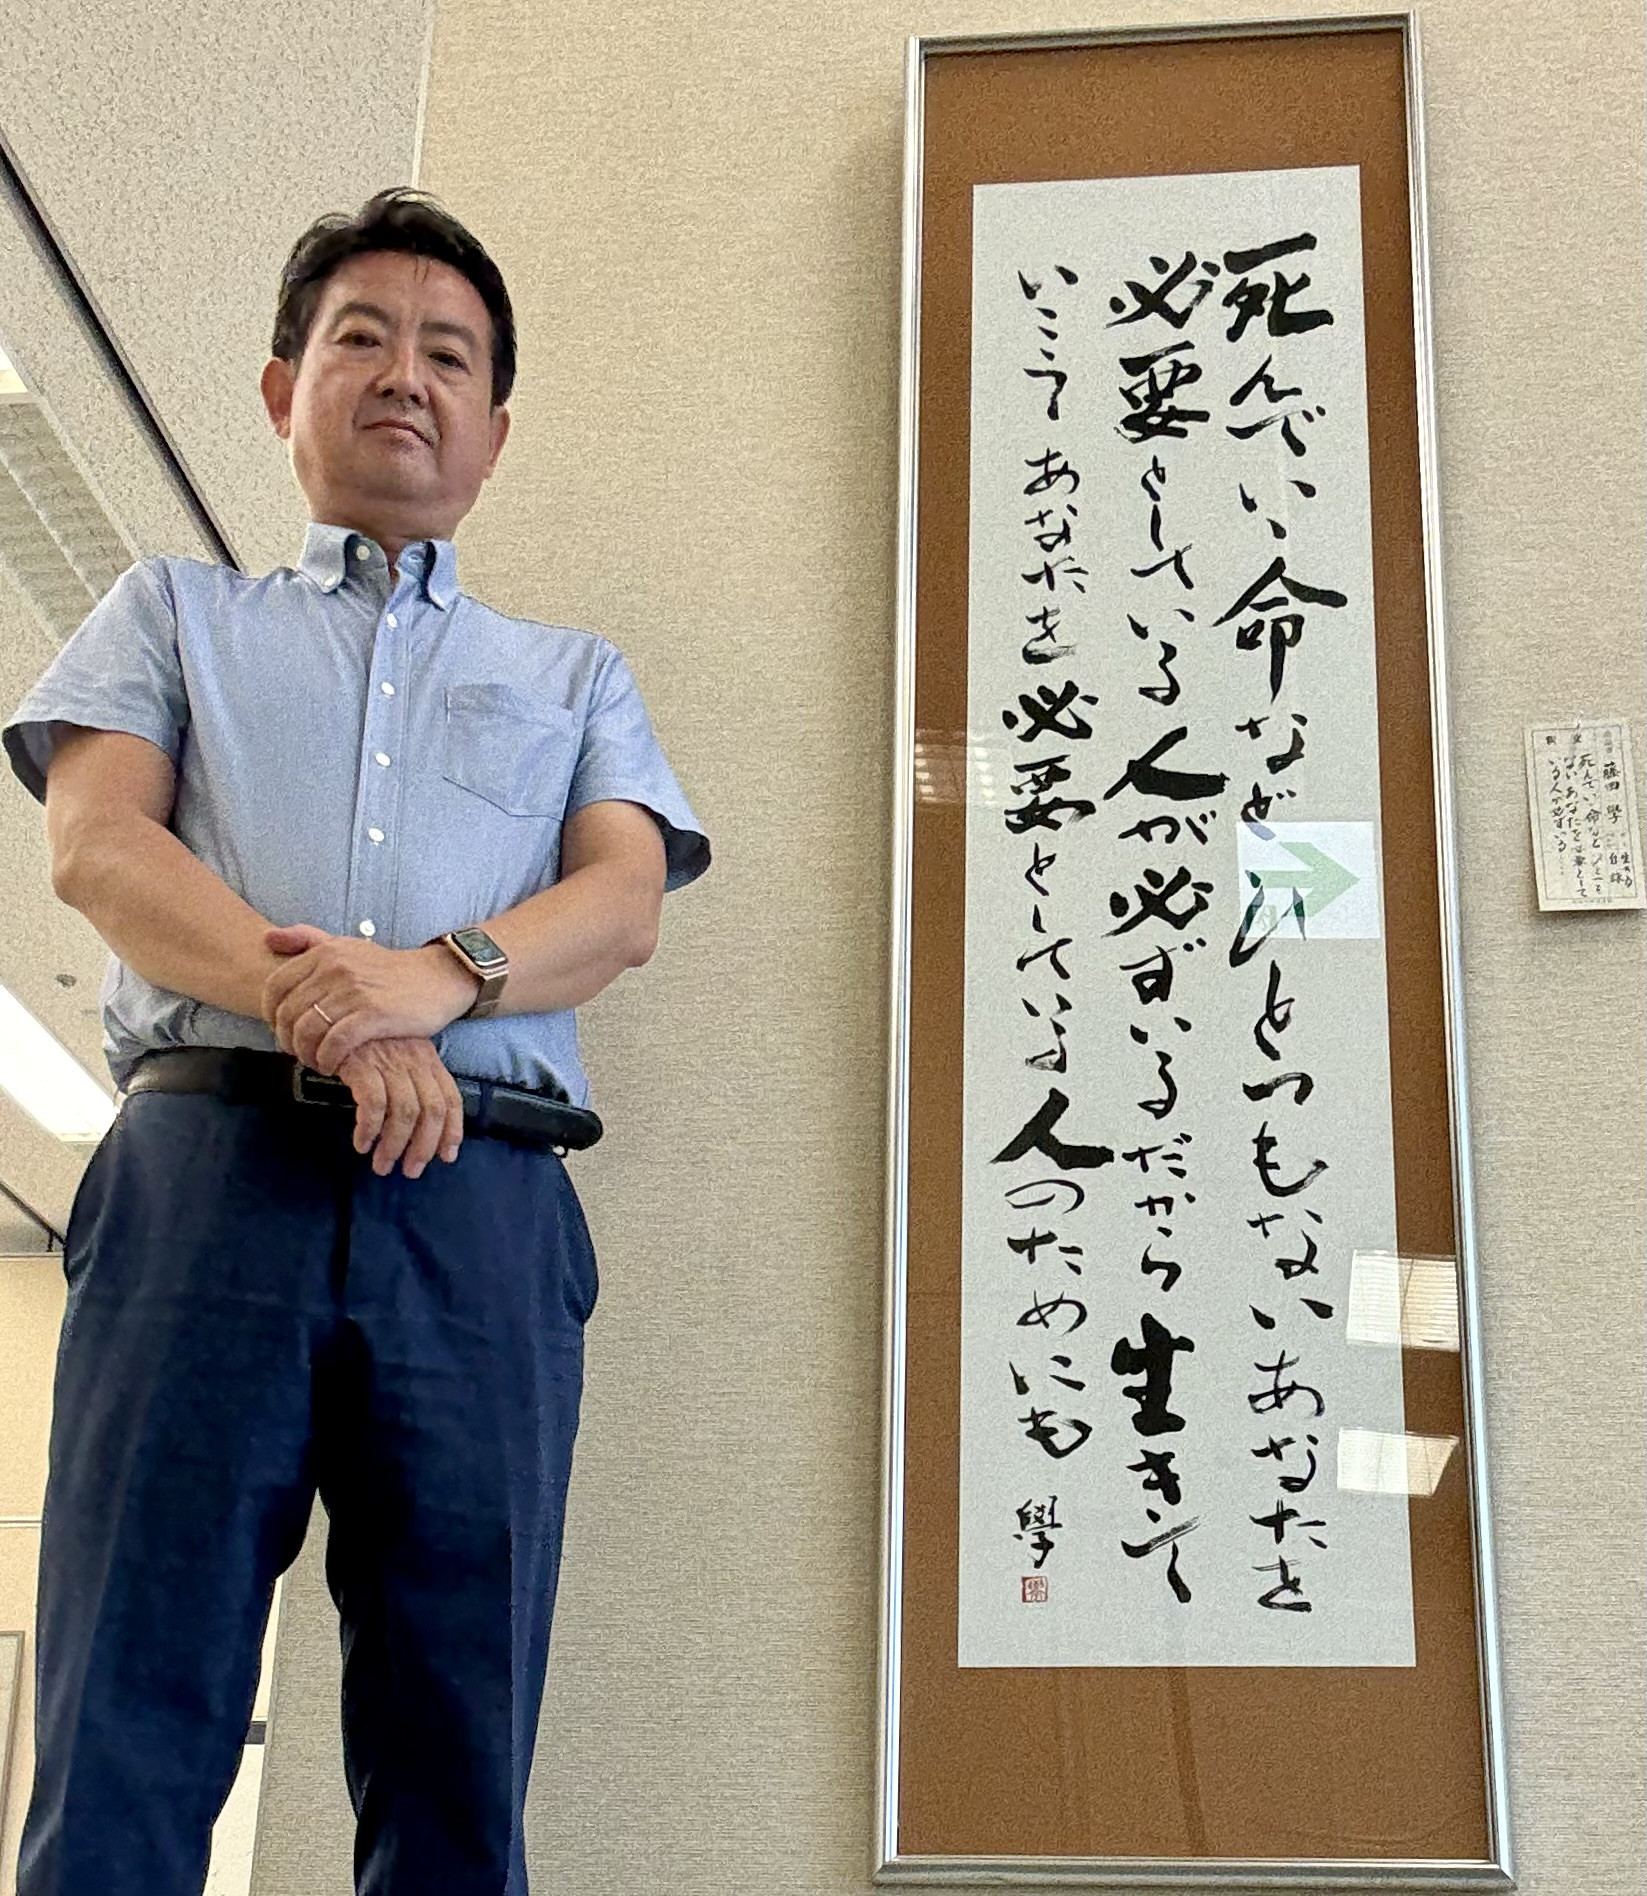 死んでいい命などひとつもないあなたを
必要としている人が必ずいるだから生きて
いこうあなたを必要としている人のためにも
學
藤田 學
死んでいい命などひとつも
ないあなたを必要として
いる人が必ずいる……